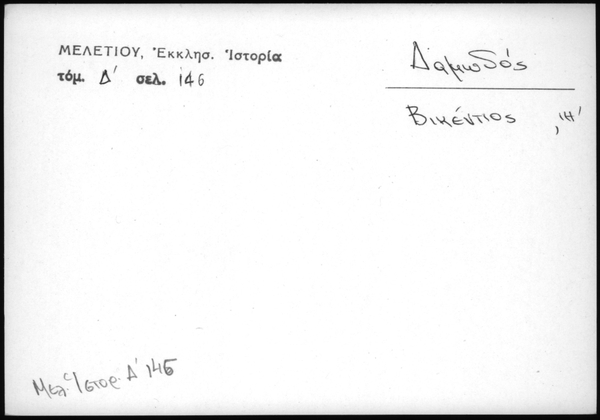 ΜΕΛΕΤΙΟΥ, Ἐκκλησ. Ἱστορία
τόμ. Δ' σελ. 146
Δαμωδός
Βικέντιος ,ιη'
Μελ. Ἱστορ. Δ' 146